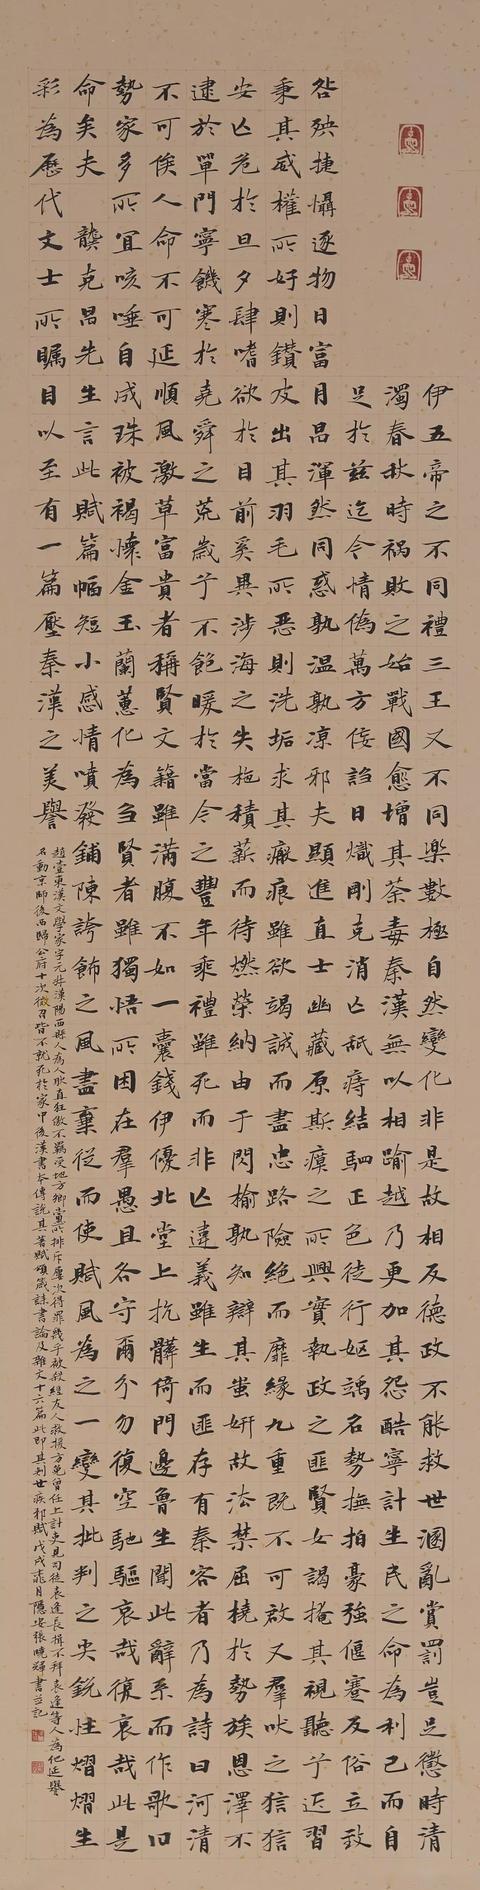 伊五帝之不同禮三王又不同樂數極自然變化非是故相反德政不能救世溷亂賞罰豈足懲時清
濁春秋時禍敗之始戰國愈增其荼毒秦漢無以相踰越乃更加其怨酷寧計生民之命為利己而自
足於茲迄今情偽萬方佞諂日熾剛克消亡舐痔結駟正色徒行嫗䞕名勢撫拍豪強偃蹇反俗立致
咎殃捷懾逐物日富月昌渾然同惑孰溫孰涼邪夫顯進直士幽藏原斯瘼之所興實執政之匪賢女謁掩其視聽兮近習
秉其威權所好則鑽皮出其羽毛所惡則洗垢求其瘢痕雖欲竭誠而盡忠路險絕而靡緣九重既不可啟又羣吠之狺狺
安亡危於旦夕肆嗜欲於目前奚異涉海之失柂積薪而待燃榮納由于閃榆孰知辯其蚩妍故法禁屈橈於勢族恩澤不
逮於單門寧饑寒於堯舜之荒歲兮不飽暖於當今之豐年乘禮雖死而非亡違義雖生而匪存有秦客者乃為詩曰河清
不可俟人命不可延順風激草富貴者稱賢文籍雖滿腹不如一囊錢伊優北堂上抗髒倚門邊魯生聞此辭系而作歌曰
勢家多所宜咳唾自成珠被褐懷金玉蘭蕙化為芻賢者雖獨悟所困在羣愚且各守爾分勿復空馳驅哀哉復哀哉此是
命矣夫 龔克昌先生言此賦篇幅短小感情噴發鋪陳誇飾之風盡棄從而使賦風為之一變其批判之尖銳性熠熠生
彩為歷代文士所矚目以至有一篇壓秦漢之美譽
趙壹東漢文學家字元叔漢陽西縣人為人耿直狂傲不羈受地方鄉黨所排斥屢次得罪幾乎被殺經友人救援方免曾任上計吏見司徒袁逢長揖不拜袁逢等人為化延譽
名動京師後西歸公府十次徵召皆不就死於家中後漢書本傳說其著賦頌箴誄書論及雜文十六篇此即其刺世疾邪賦戊戌月隱安張曉輝書並記